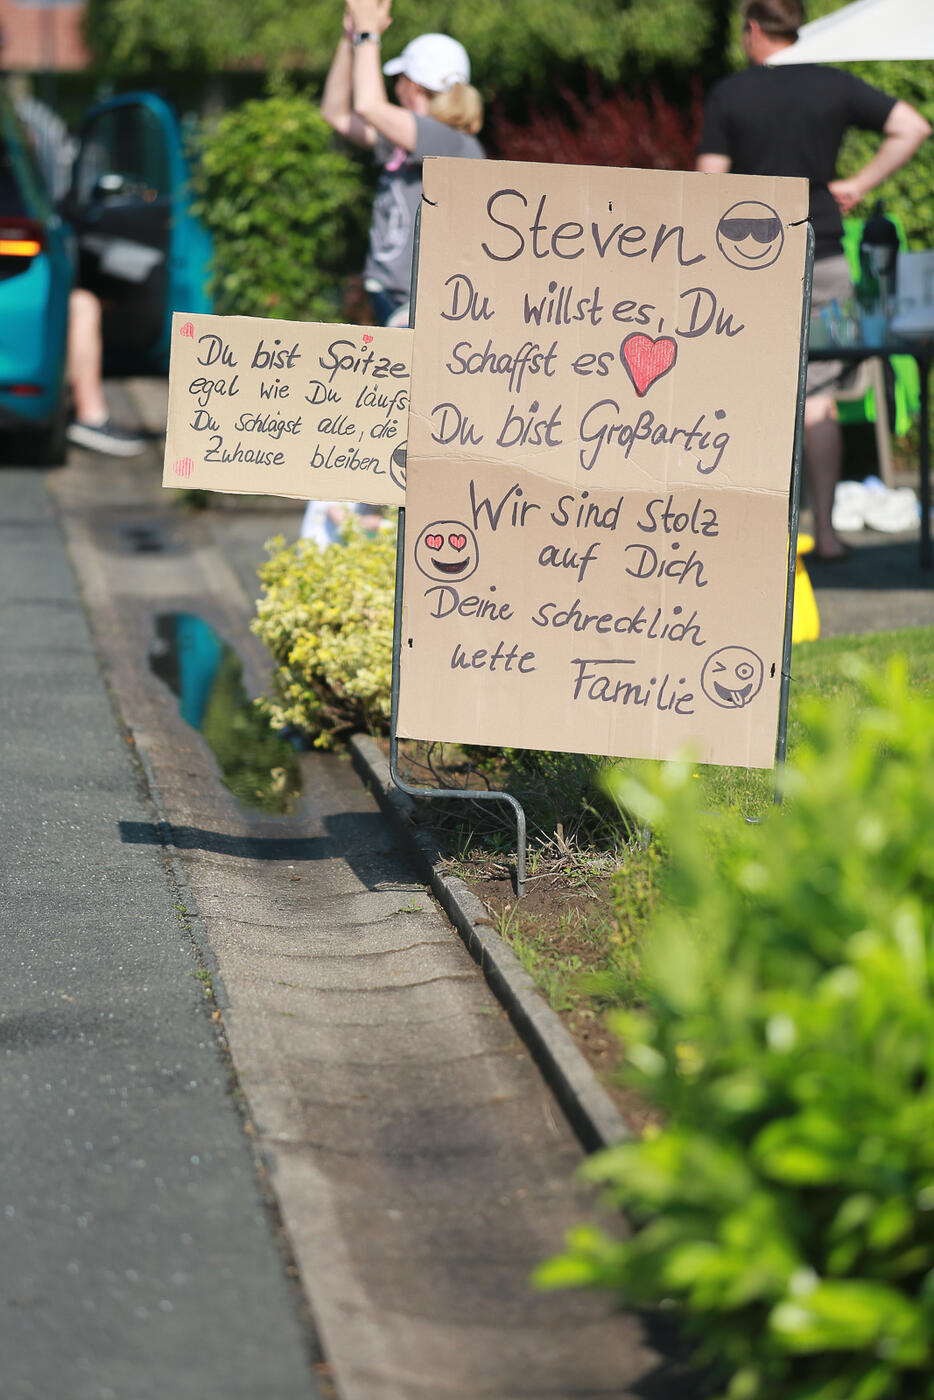 Steven
Du willst es, Du
Schaffst es
Du bist Großartig
Wir sind stolz
auf Dich
Deine schrecklich
nette Familie
Du bist Spitze
egal wie Du läufs
Du schlägst alle, die
Zuhause bleiben